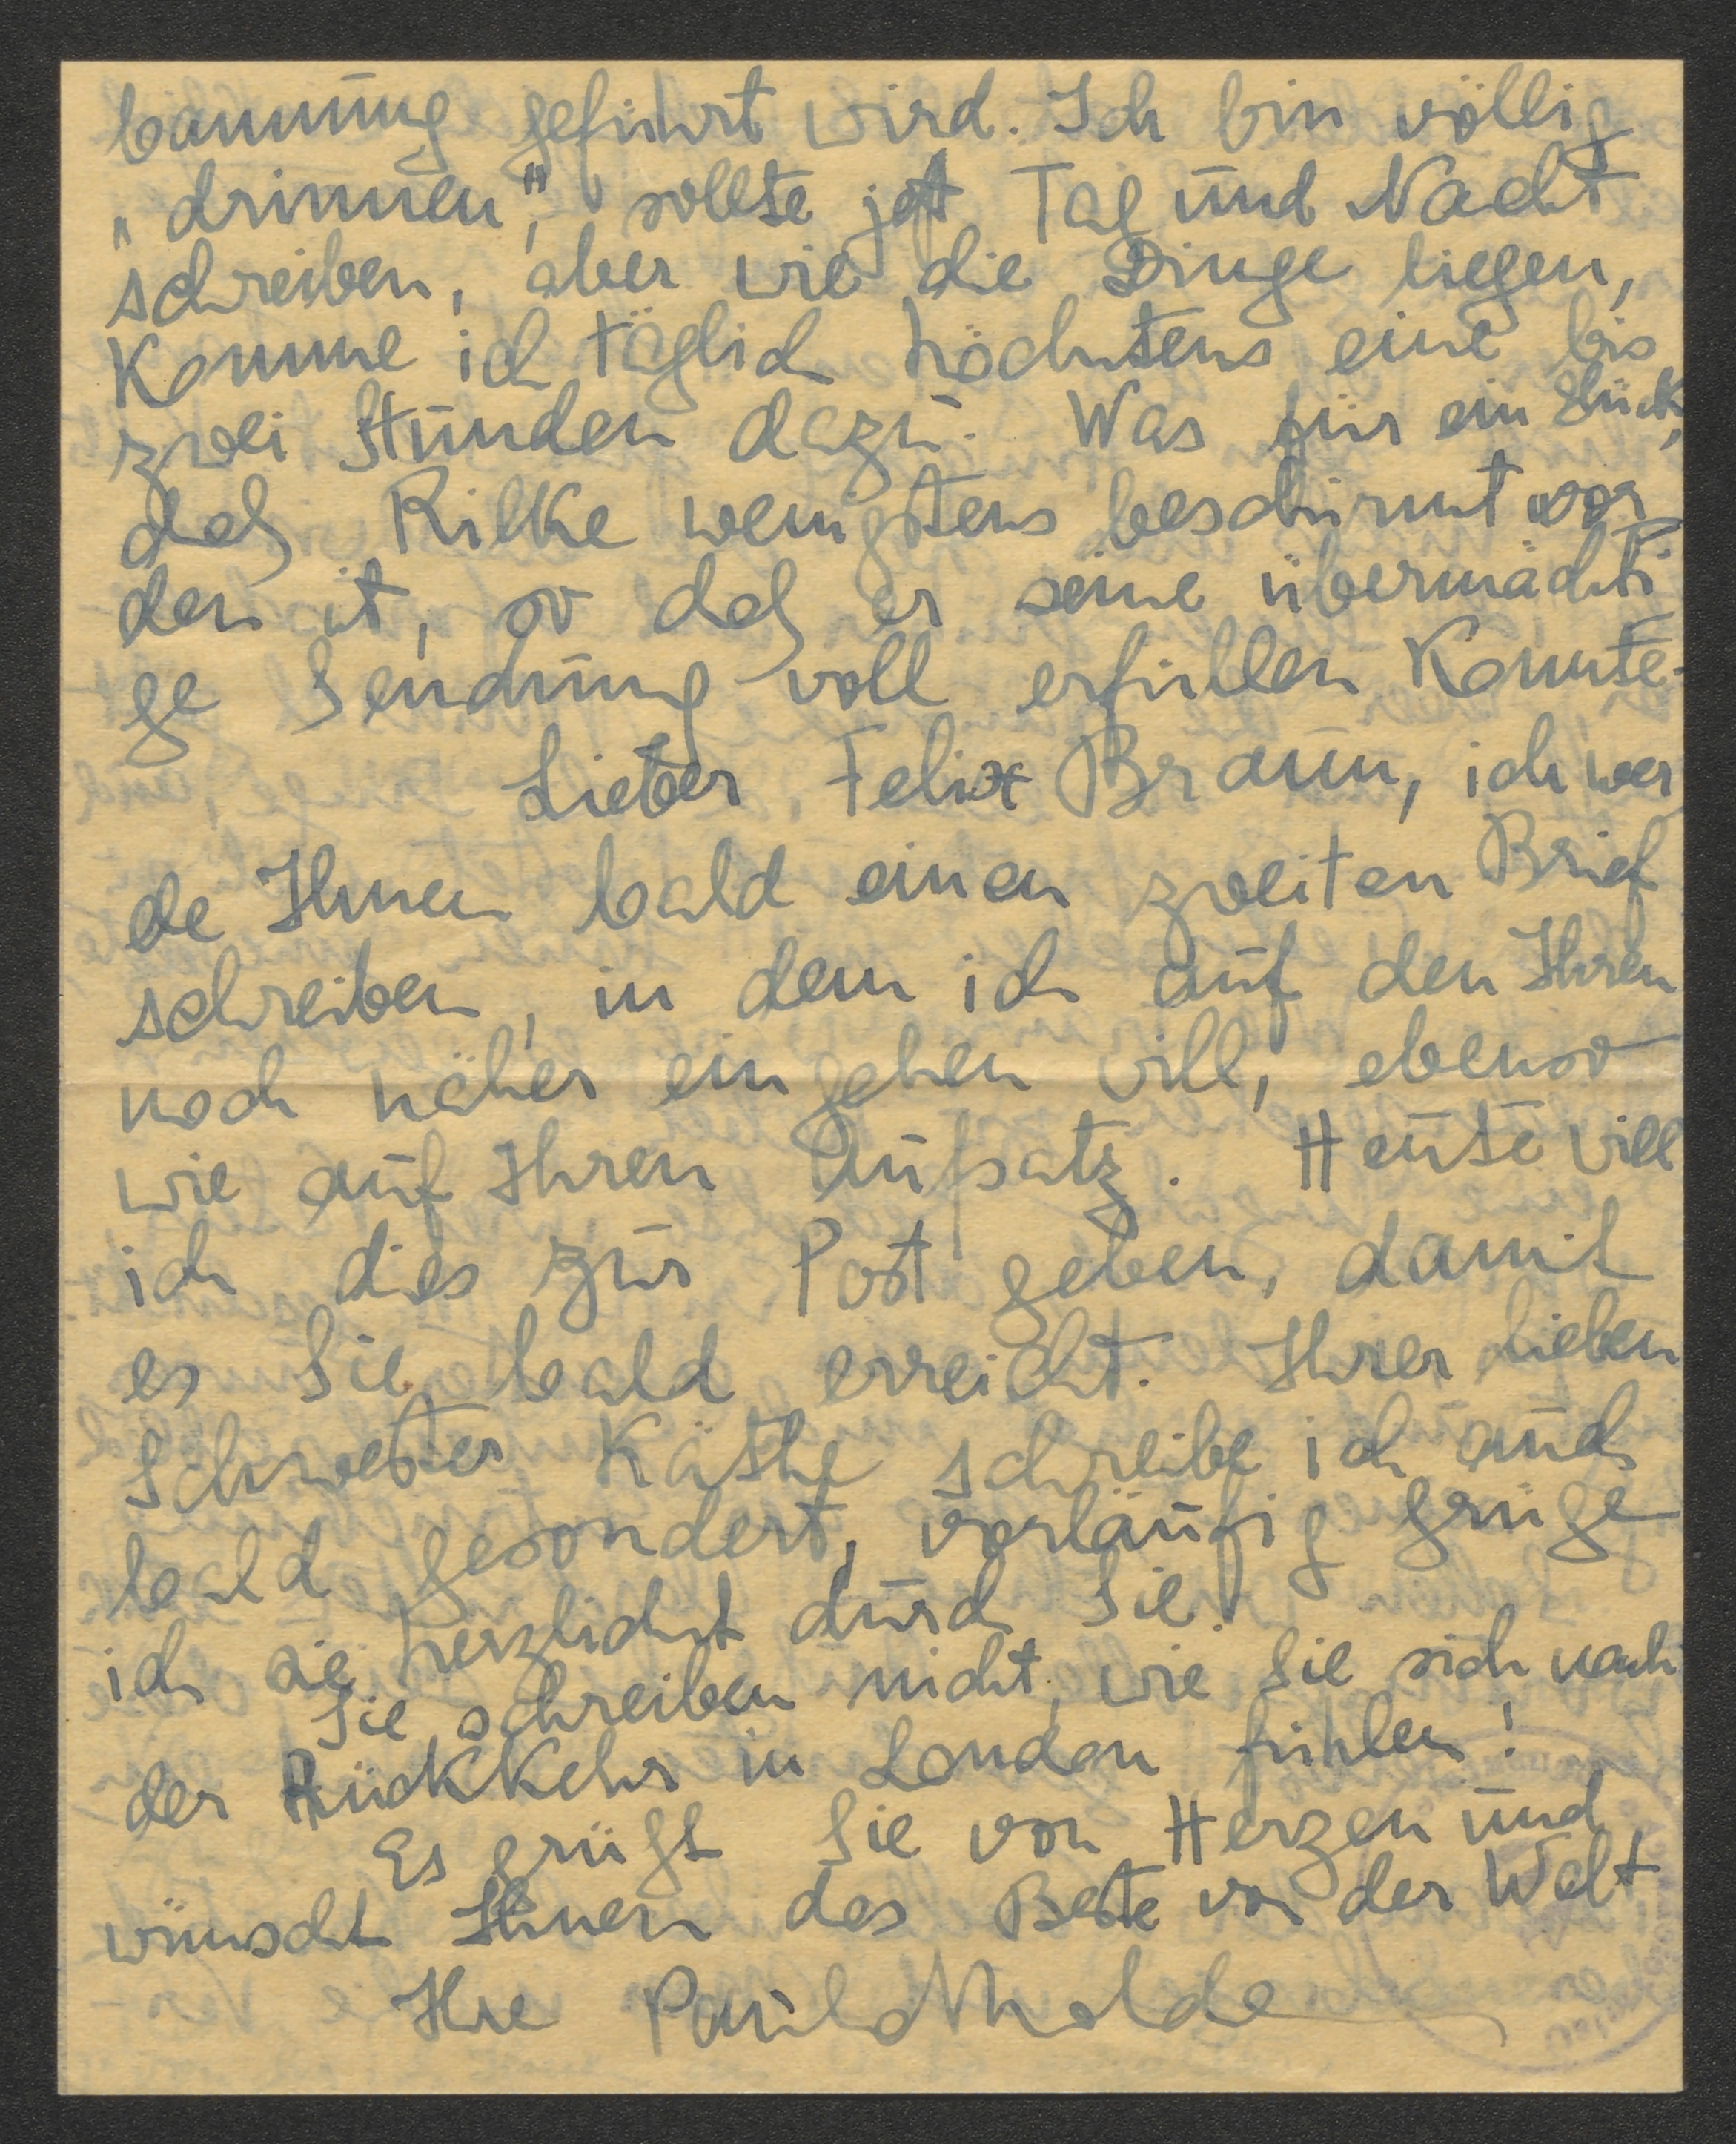 bannung geführt wird. Ich bin völlig
„drinnen", sollte jetzt Tag und Nacht
schreiben, aber wie die Dinge liegen,
komme ich täglich höchstens eine bis
zwei Stunden dazu. Was für ein Glück,
daß Rilke wenigstens beschirmt wor
den ist, so daß er seine übermächti
ge Sendung voll erfüllen konnte.
Lieber Felix Braun, ich wer
de Ihnen bald einen zweiten Brief
schreiben, in dem ich auf den Ihren
noch näher eingehen will, ebenso
wie auf Ihren Aufsatz. Heute will
ich dies zur Post geben, damit
es Sie bald erreicht. Ihrer lieben
Schwester Käthe schreibe ich auch
bald gesondert, vorläufig grüße
ich sie herzlichst durch Sie.
Sie schreiben nicht, wie Sie sich nach
der Rückkehr in London fühlen!
Es grüßt Sie von Herzen und
wünscht Ihnen das Beste von der Welt
Ihre Paula